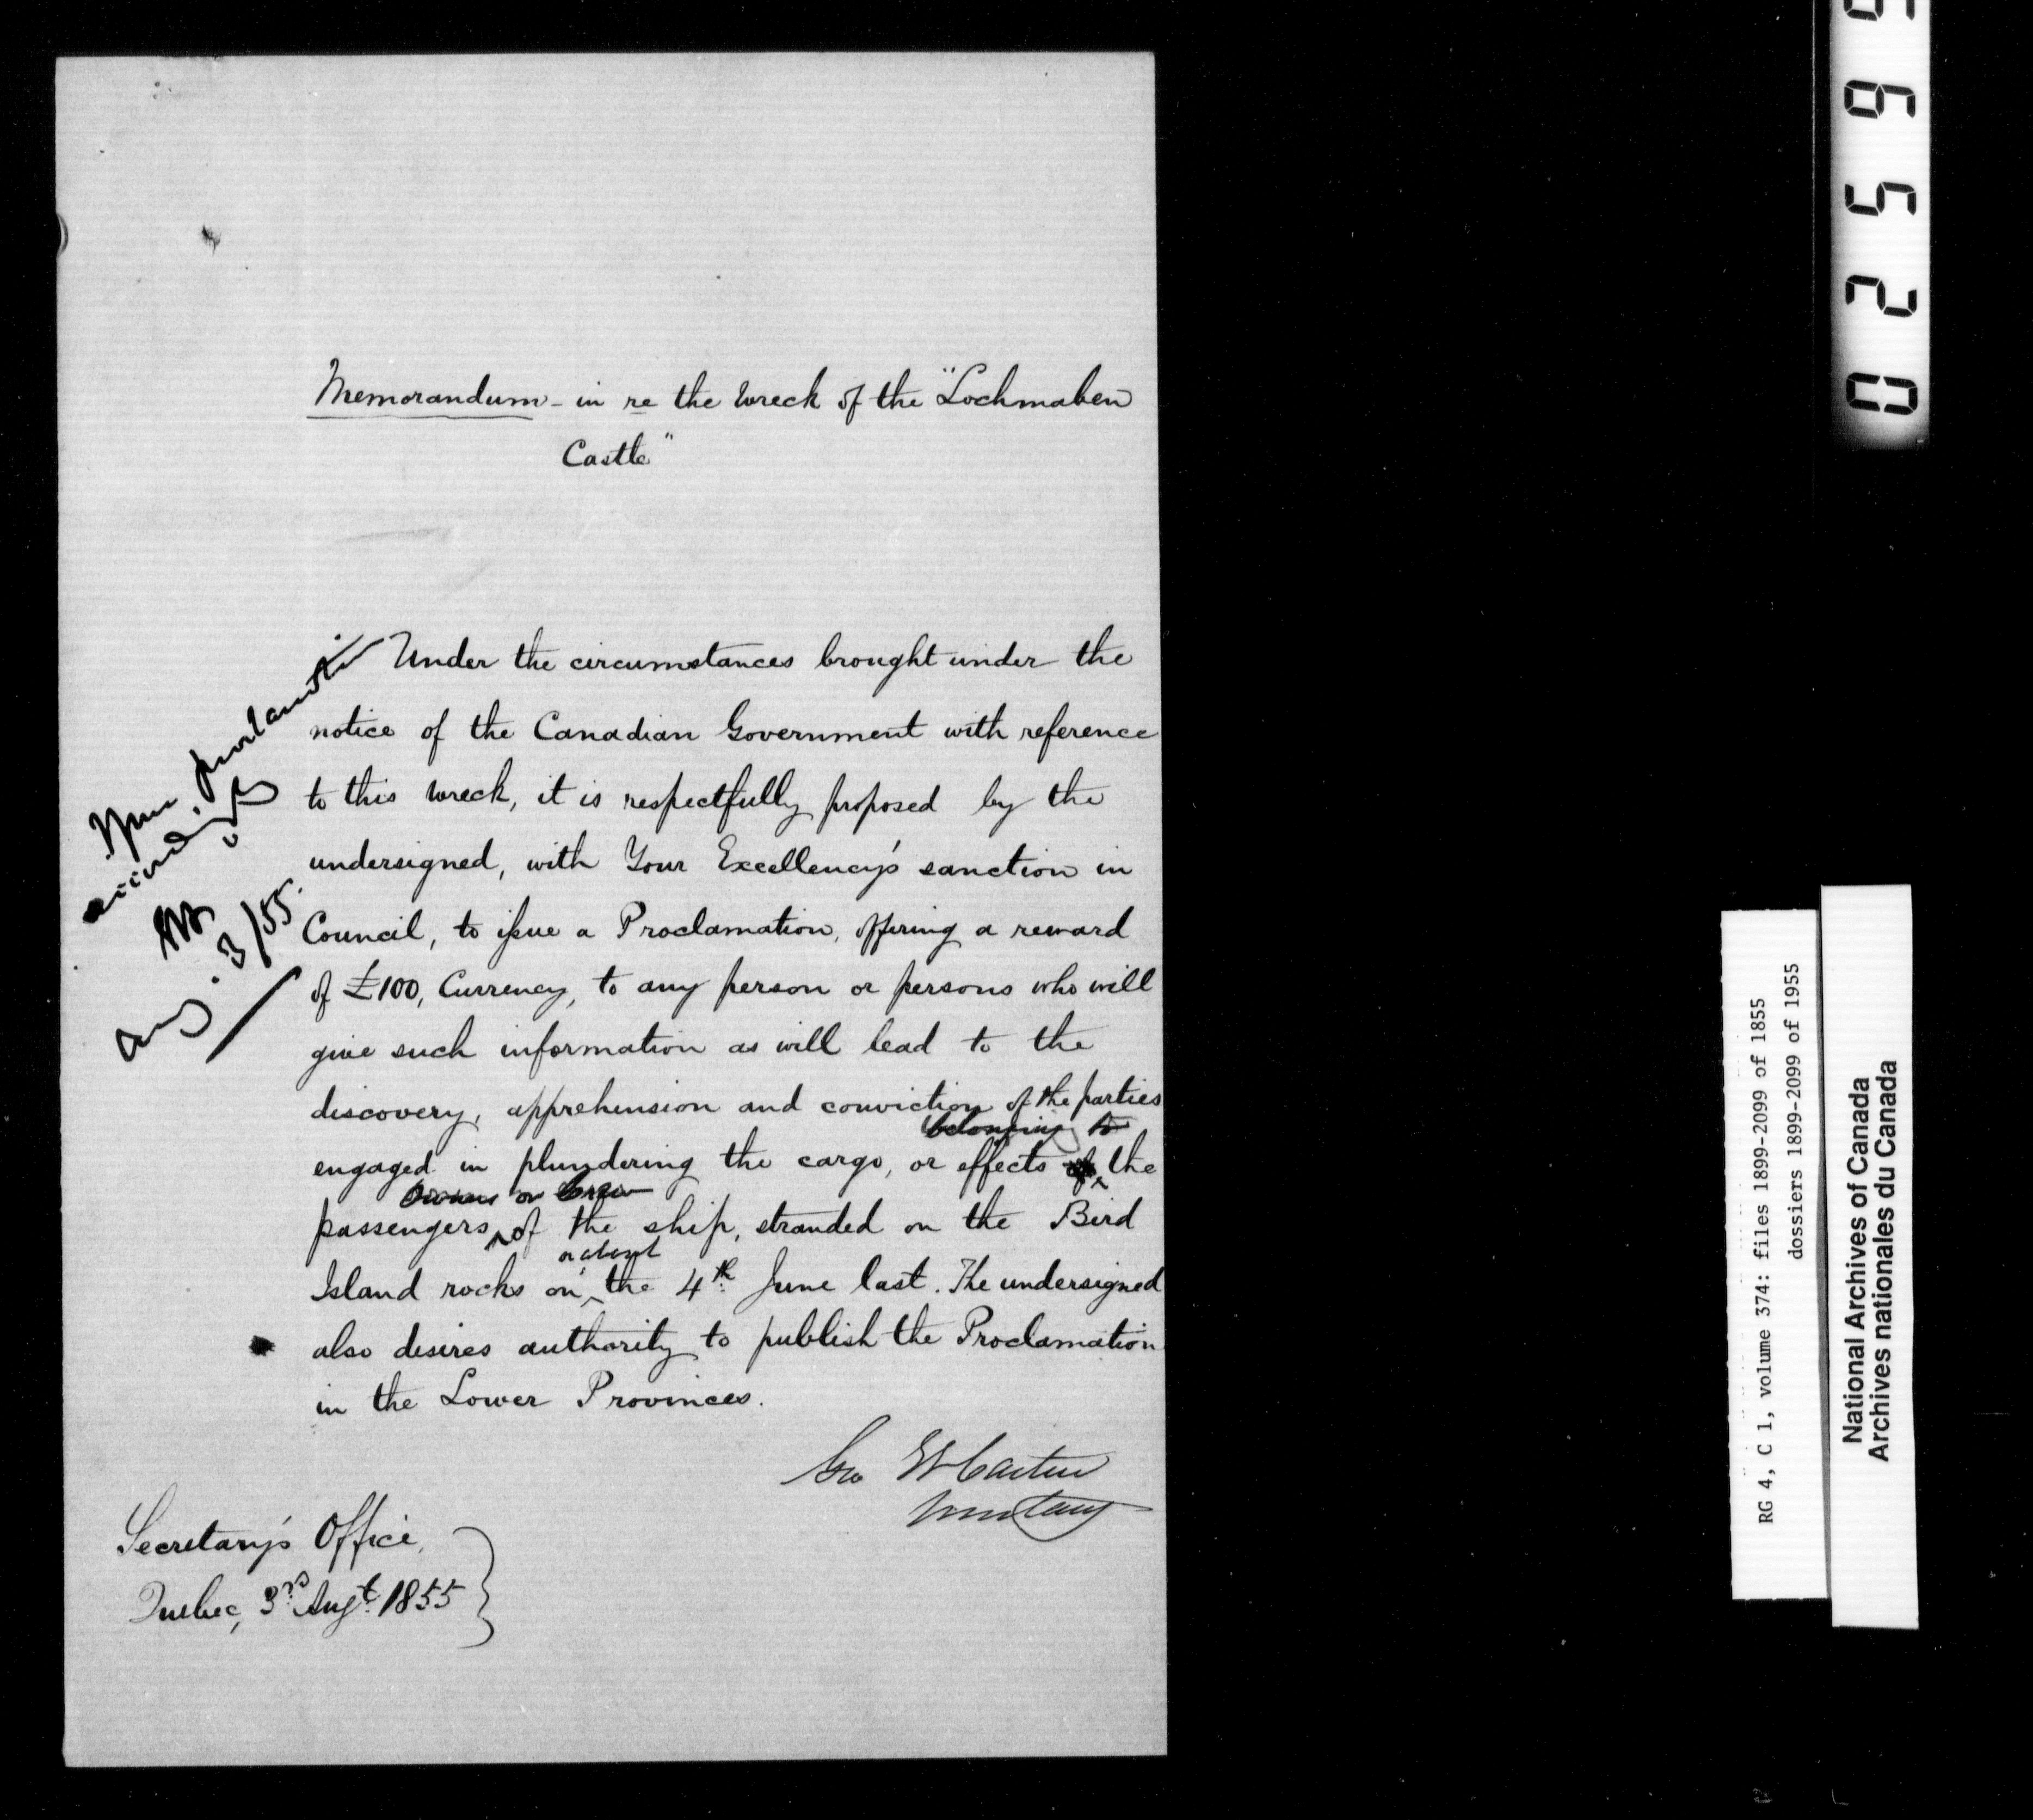 Memorandum - in re the Wreck of the "Lochmaben
Castle"
Under the circumstances brought under the
notice of the Canadian Government with reference
to this wreck, it is respectfully proposed by the
undersigned, with Your Excellency's sanction in
Council, to issue a Proclamation, offering a reward
of £100, Currency, to any person or persons who will
give such information as will lead to the
discovery, apprehension and conviction of the parties
belonging to
engaged in plundering the cargo, or effects of the
Owners or Crew
passengers of the ship, stranded on the Bird
or about
Island rocks on the 4th June last. The undersigned
also desires authority to publish the Proclamation
in the Lower Provinces.
Geo Et Cartier
Secretary
Secretary's Office,
Quebec, 3rd Augt. 1855
Proclamation
accordingly
Aug. 3/55.
02595
RG 4, C 1, volume 374: files 1899-2099 of 1855
dossiers 1899-2099 of 1955
National Archives of Canada
Archives nationales du Canada